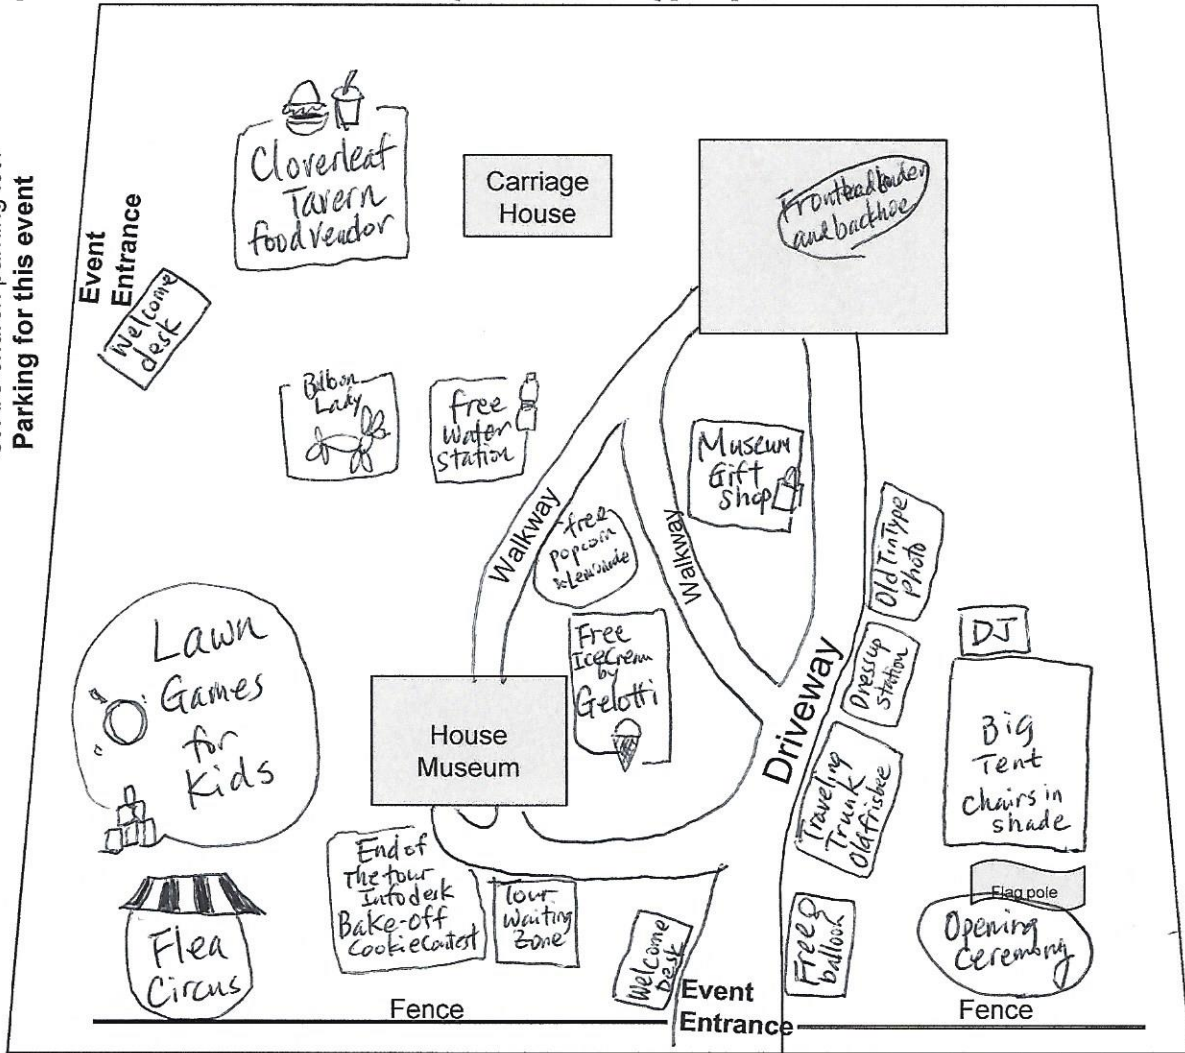 Parking for this event
Event
Entrance
Welcome
desk
Cloverleaf
Tavern
food vendor
Carriage
House
and backhoe
Balloon
Lady
free
water
station
Museum
Gift
Shop
Walkway
free
popcorn
& Lemonade
Walkway
Old TinType
Photo
Lawn
Games
for
Kids
Free
IceCream
by
Gelotti
House
Museum
Driveway
Dress up
station
DJ
Big
Tent
Chairs in
shade
Traveling
Trunk
Old frisbee
End of
The tour
Info desk
Bake-off
Cookie Contest
Tour
Waiting
Zone
Flea
Circus
Welcome
Desk
Free
balloon
Flag pole
Opening
Ceremony
Fence
Event
Entrance
Fence